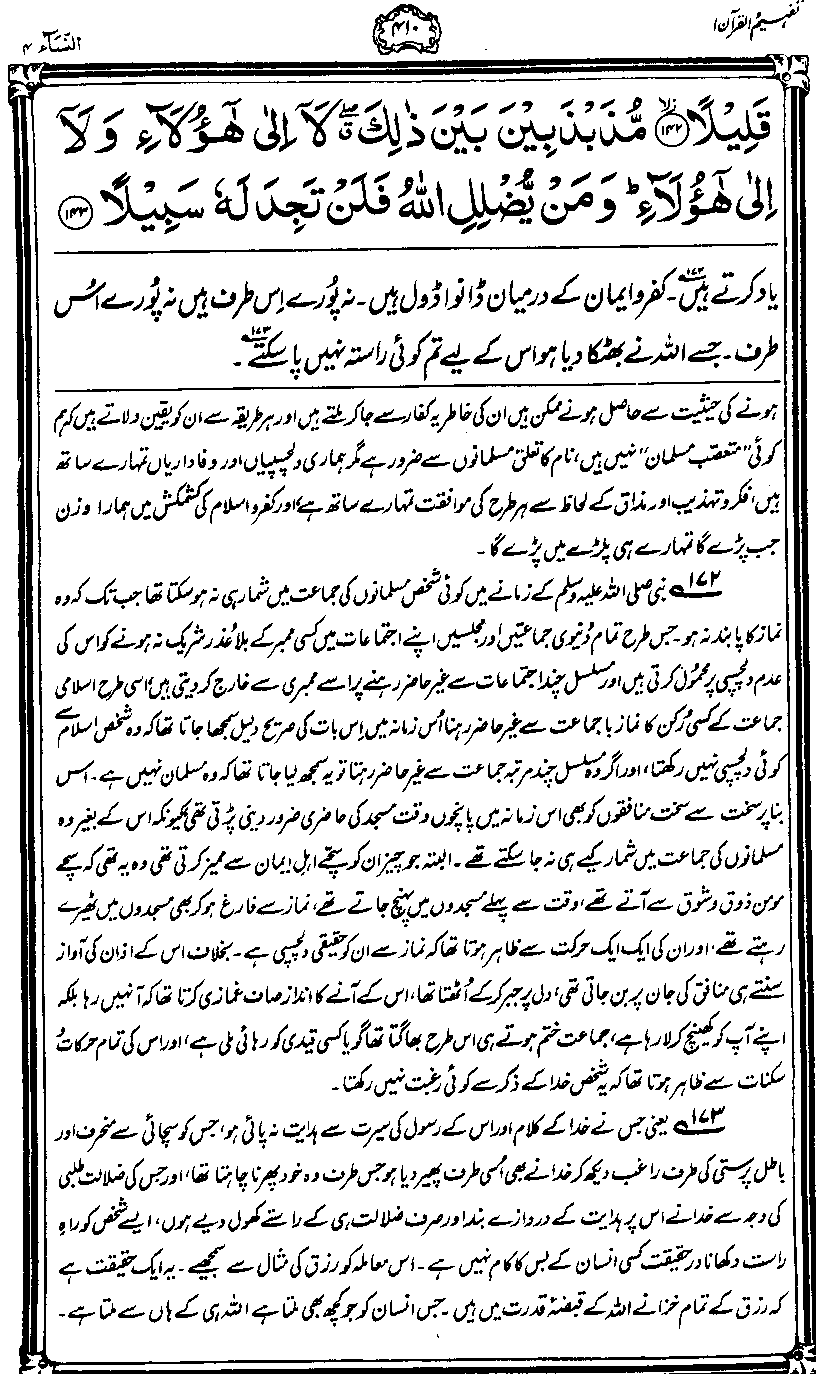 تفہیم القرآن ۱
۴۱۰
النساء ۴
قَلِيلًا ﴿۱۴۲﴾ مُّذَبْذَبِينَ بَيْنَ ذٰلِكَ ۖ لَآ اِلٰى هٰٓؤُلَآءِ وَلَآ
اِلٰى هٰٓؤُلَآءِ ؕ وَمَنْ يُّضْلِلِ اللّٰهُ فَلَنْ تَجِدَ لَهٗ سَبِيلًا ﴿۱۴۳﴾
یاد کرتے ہیں۱۷۲۔ کفر و ایمان کے درمیان ڈانواڈول ہیں۔ نہ پُورے اِس طرف ہیں نہ پُورے اُس
طرف۔ جسے اللہ نے بھٹکا دیا ہو اس کے لیے تم کوئی راستہ نہیں پا سکتے۱۷۳۔
ہونے کی حیثیت سے حاصل ہونے ممکن ہیں ان کی خاطر یہ کفار سے جا کر ملتے ہیں اور ہر طریقہ سے ان کو یقین دلاتے ہیں کہ ہم
کوئی ”متعصّب مسلمان“ نہیں ہیں، نام کا تعلق مسلمانوں سے ضرور ہے مگر ہماری دلچسپیاں اور وفاداریاں تمہارے ساتھ
ہیں، فکر و تہذیب اور مذاق کے لحاظ سے ہر طرح کی موافقت تمہارے ساتھ ہے، اور کفر و اسلام کی کشمکش میں ہمارا وزن
جب پڑے گا تمہارے ہی پلڑے میں پڑے گا۔
۱۷۲ نبی صلی اللہ علیہ وسلم کے زمانے میں کوئی شخص مسلمانوں کی جماعت میں شمار ہی نہ ہو سکتا تھا جب تک کہ وہ
نماز کا پابند نہ ہو۔ جس طرح تمام دُنیوی جماعتیں اور مجلسیں اپنے اجتماعات میں کسی ممبر کے بلا عُذر شریک نہ ہونے کو اس کی
عدم دلچسپی پر محمُول کرتی ہیں اور مسلسل چند اجتماعات سے غیر حاضر رہنے پر اسے ممبری سے خارج کر دیتی ہیں، اسی طرح اسلامی
جماعت کے کسی رُکن کا نماز باجماعت سے غیر حاضر رہنا اُس زمانہ میں اِس بات کی صریح دلیل سمجھا جاتا تھا کہ وہ شخص اسلام سے
کوئی دلچسپی نہیں رکھتا، اور اگر وہ مسلسل چند مرتبہ جماعت سے غیر حاضر رہتا تو یہ سمجھ لیا جاتا تھا کہ وہ مسلمان نہیں ہے۔ اس
بنا پر سخت سے سخت منافقوں کو بھی اس زمانہ میں پانچوں وقت مسجد کی حاضری ضرور دینی پڑتی تھی، کیونکہ اس کے بغیر وہ
مسلمانوں کی جماعت میں شمار کیے ہی نہ جا سکتے تھے۔ البتہ جو چیز ان کو سچّے اہلِ ایمان سے ممیز کرتی تھی وہ یہ تھی کہ سچے
مومن ذوق و شوق سے آتے تھے، وقت سے پہلے مسجدوں میں پہنچ جاتے تھے، نماز سے فارغ ہو کر بھی مسجدوں میں ٹھیرے
رہتے تھے، اور ان کی ایک ایک حرکت سے ظاہر ہوتا تھا کہ نماز سے ان کو حقیقی دلچسپی ہے۔ بخلاف اس کے اذان کی آواز
سنتے ہی منافق کی جان پر بن جاتی تھی، دل پر جبر کر کے اُٹھتا تھا، اس کے آنے کا انداز صاف غمازی کرتا تھا کہ آ نہیں رہا بلکہ
اپنے آپ کو کھینچ کر لا رہا ہے، جماعت ختم ہوتے ہی اس طرح بھاگتا تھا گویا کسی قیدی کو رہائی ملی ہے، اور اس کی تمام حرکات و
سکنات سے ظاہر ہوتا تھا کہ یہ شخص خدا کے ذکر سے کوئی رغبت نہیں رکھتا۔
۱۷۳ یعنی جس نے خدا کے کلام اور اس کے رسول کی سیرت سے ہدایت نہ پائی ہو، جس کو سچائی سے منحرف اور
باطل پرستی کی طرف راغب دیکھ کر خدا نے بھی اُسی طرف پھیر دیا ہو جس طرف وہ خود پھرنا چاہتا تھا، اور جس کی ضلالت طلبی
کی وجہ سے خدا نے اس پر ہدایت کے دروازے بند اور صرف ضلالت ہی کے راستے کھول دیے ہوں، ایسے شخص کو راہِ
راست دکھانا درحقیقت کسی انسان کے بس کا کام نہیں ہے۔ اس معاملہ کو رزق کی مثال سے سمجھیے۔ یہ ایک حقیقت ہے
کہ رزق کے تمام خزانے اللہ کے قبضۂ قدرت میں ہیں۔ جس انسان کو جو کچھ بھی ملتا ہے اللہ ہی کے ہاں سے ملتا ہے۔